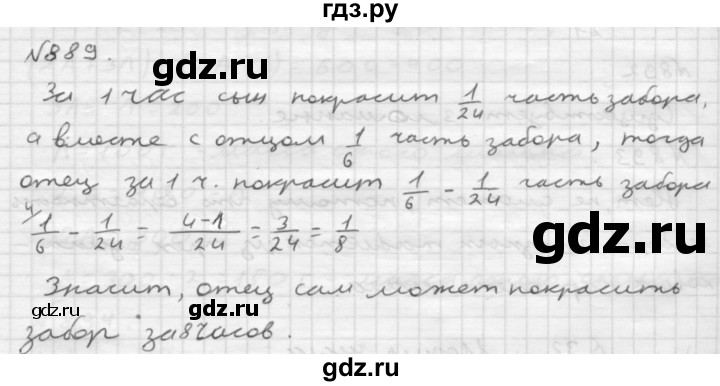 гдз.ру
№889.
За 1 час сын покрасит 1/24 часть забора,
а вместе с отцом 1/6 часть забора, тогда
отец за 1 ч. покрасит 1/6 - 1/24 часть забора
4/ 1/6 - 1/24 = 4-1/24 = 3/24 = 1/8
Значит, отец сам может покрасить
забор за 8 часов.
gdz.ru
gdz.ru
gdz.ru
gdz.ru
gdz.ru
gdz.ru
gdz.ru